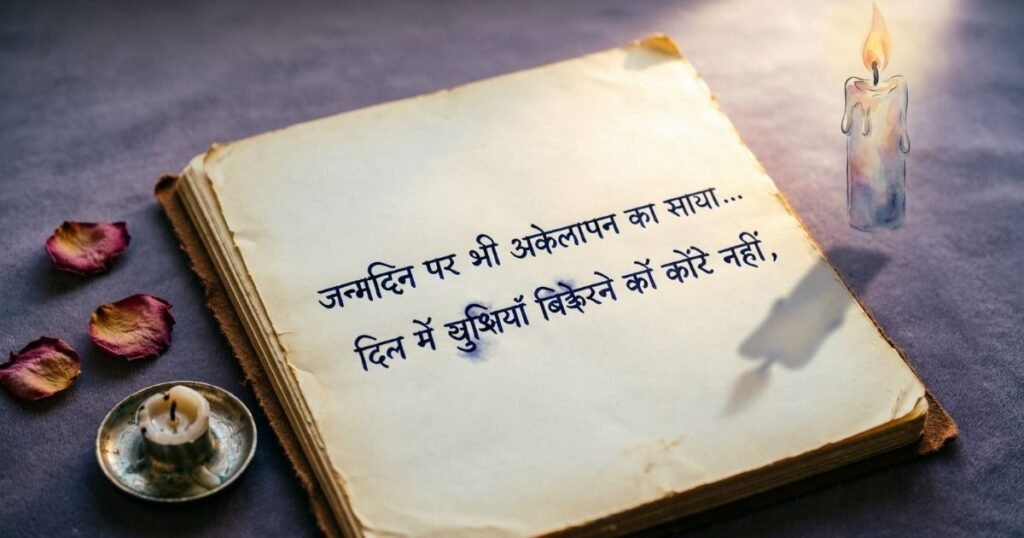 जन्मदिन पर भी अकेलापन का साया...
दिल में को कोरे नहीं,